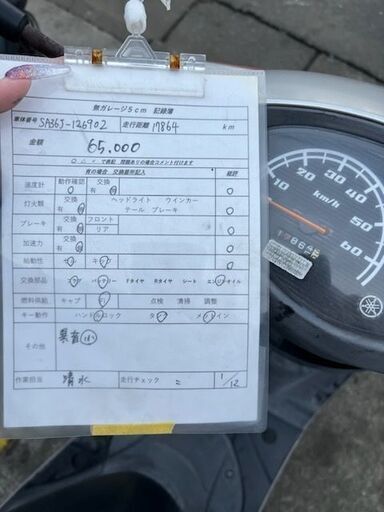 無ガレージ5cm 記録簿
車体番号 SA36J-126902 走行距離 17864 km
金額 65,000
○ △ × で表記 問題ありの場合コメント付けます
有の場合 交換箇所記入 総評
速度計 動作確認 交換 有 無 ○
灯火類 交換 有 無 ヘッドライト ウインカー テール ブレーキ ○
ブレーキ 交換 有 無 フロント リア ○
加速力 交換 有 無 ○
始動性 セル キック ○
交換部品 エアクリ バッテリー Fタイヤ Rタイヤ シート エンジンオイル
燃料供給 キャブ FI 点検 清掃 調整
キー動作 ハンドルロック タンク メイン
その他 異音
作業担当 清水 走行チェック 1/12
10
50
60
km/h
17864